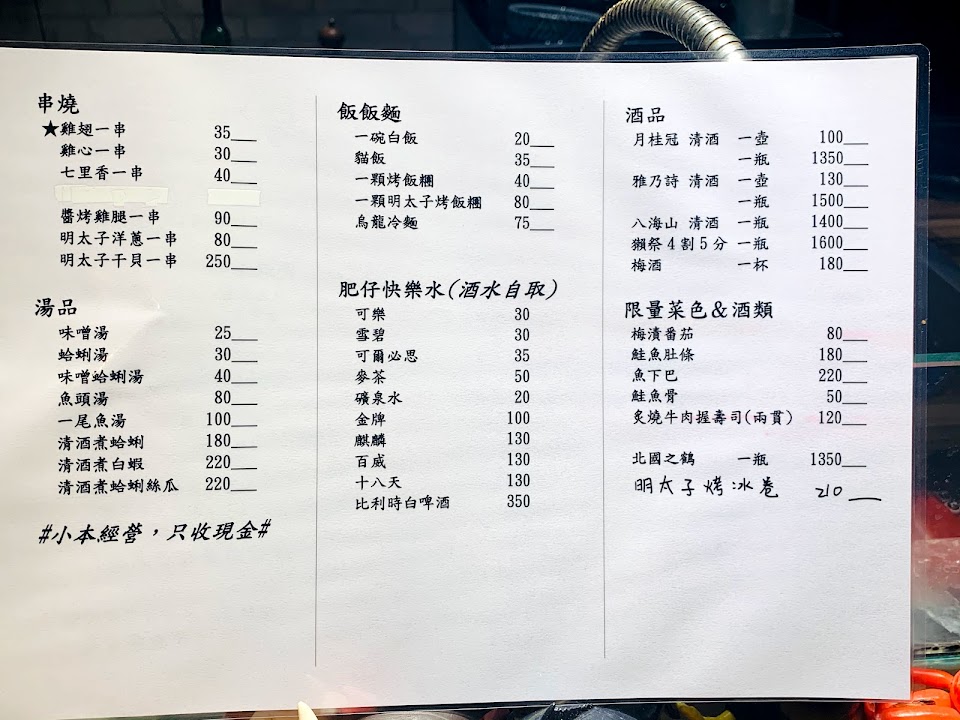 串燒
★雞翅一串 35___
雞心一串 30___
七里香一串 40___
醬烤雞腿一串 90___
明太子洋蔥一串 80___
明太子干貝一串 250___
湯品
味噌湯 25___
蛤蜊湯 30___
味噌蛤蜊湯 40___
魚頭湯 80___
一尾魚湯 100___
清酒煮蛤蜊 180___
清酒煮白蝦 220___
清酒煮蛤蜊絲瓜 220___
#小本經營，只收現金#
飯飯麵
一碗白飯 20___
貓飯 35___
一顆烤飯糰 40___
一顆明太子烤飯糰 80___
烏龍冷麵 75___
肥仔快樂水(酒水自取)
可樂 30
雪碧 30
可爾必思 35
麥茶 50
礦泉水 20
金牌 100
麒麟 130
百威 130
十八天 130
比利時白啤酒 350
酒品
月桂冠 清酒 一壺 100___
一瓶 1350___
雅乃詩 清酒 一壺 130___
一瓶 1500___
八海山 清酒 一瓶 1400___
獺祭4割5分 一瓶 1600___
梅酒 一杯 180___
限量菜色＆酒類
梅漬番茄 80___
鮭魚肚條 180___
魚下巴 220___
鮭魚骨 50___
炙燒牛肉握壽司(兩貫) 120___
北國之鶴 一瓶 1350___
明太子烤冰卷 210___